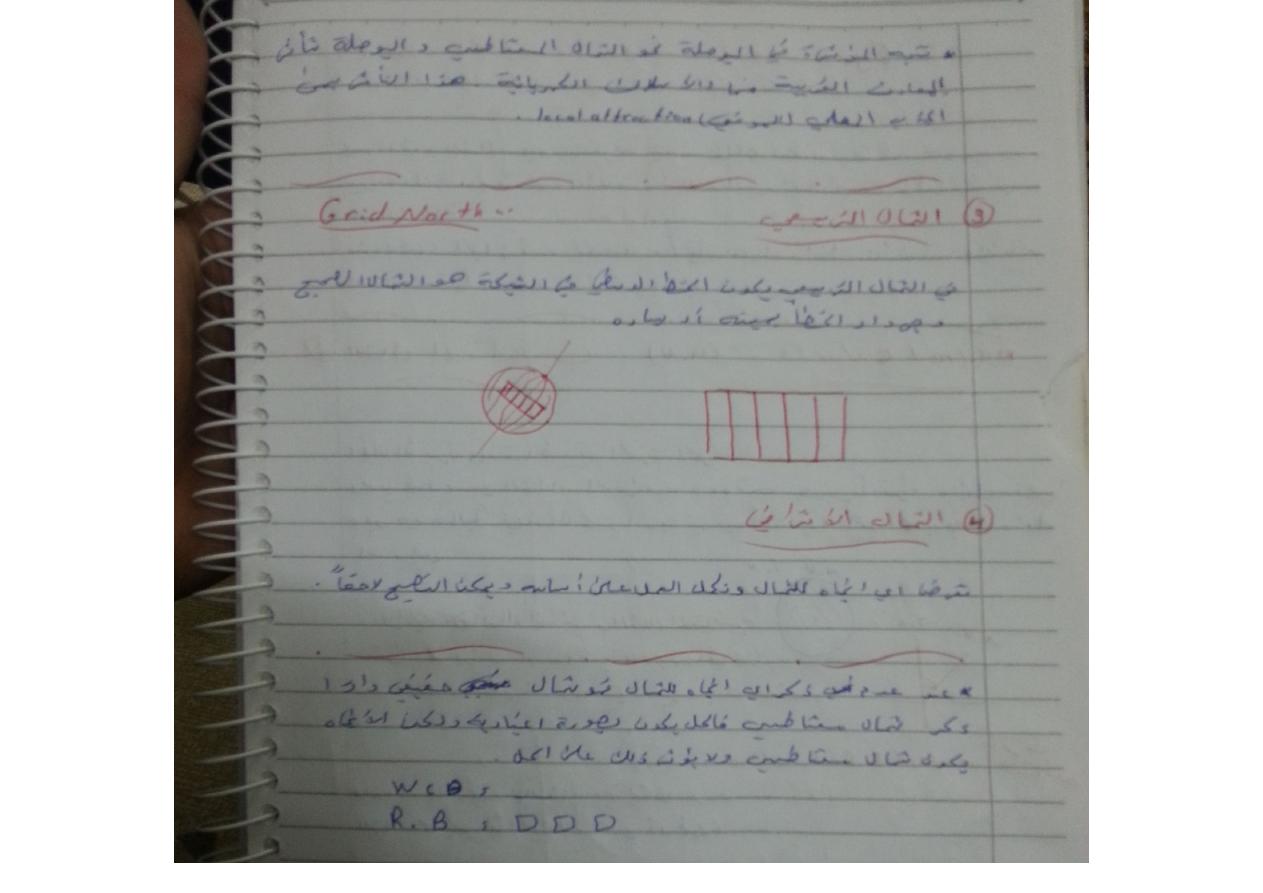 * تتجه المؤشرة في البوصلة نحو الشمال المغناطيسي و البوصلة تتأثر
بالمعادن القريبة منها والاسلاك الكهربائية. هذا التأثر يسمى
الجذب المحلي (الموضعي) local attraction.
③ الشمال التربيعي Grid North..
في الشمال التربيعي يكون الخط الوسطي في الشبكة هو الشمال الصحيح
ومقدار الخطأ يمينه أو يساره
④ الشمال الافتراضي
نفرض اي اتجاه للشمال ونكمل العمل على أساسه ويمكن التصحيح لاحقاً.
* عند عدم ذكر اي اتجاه للشمال فهو شمال حقيقي واذا
ذكر شمال مغناطيسي فالحل يكون بصورة اعتيادية ولكن الاتجاه
يكون شمال مغناطيسي ولا يؤثر ذلك على الحل.
W C B :
R. B : D D D